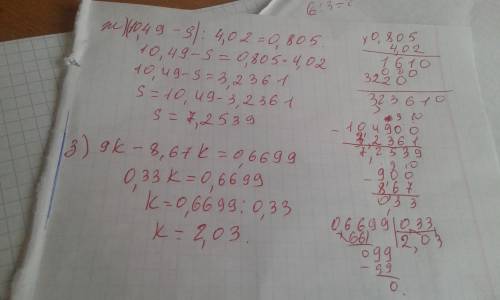 ж) (10,49 - s) : 4,02 = 0,805
10,49 - s = 0,805 · 4,02
10,49 - s = 3,2361
s = 10,49 - 3,2361
s = 7,2539
з) 9k - 8,67k = 0,6699
0,33k = 0,6699
k = 0,6699 : 0,33
k = 2,03.
x 0,805
4,02
1610
3220
323610
- 10,4900
3,2361
7,2539
- 900
867
033
0,6699 | 0,33
- 66 | 2,03
099
- 99
0.